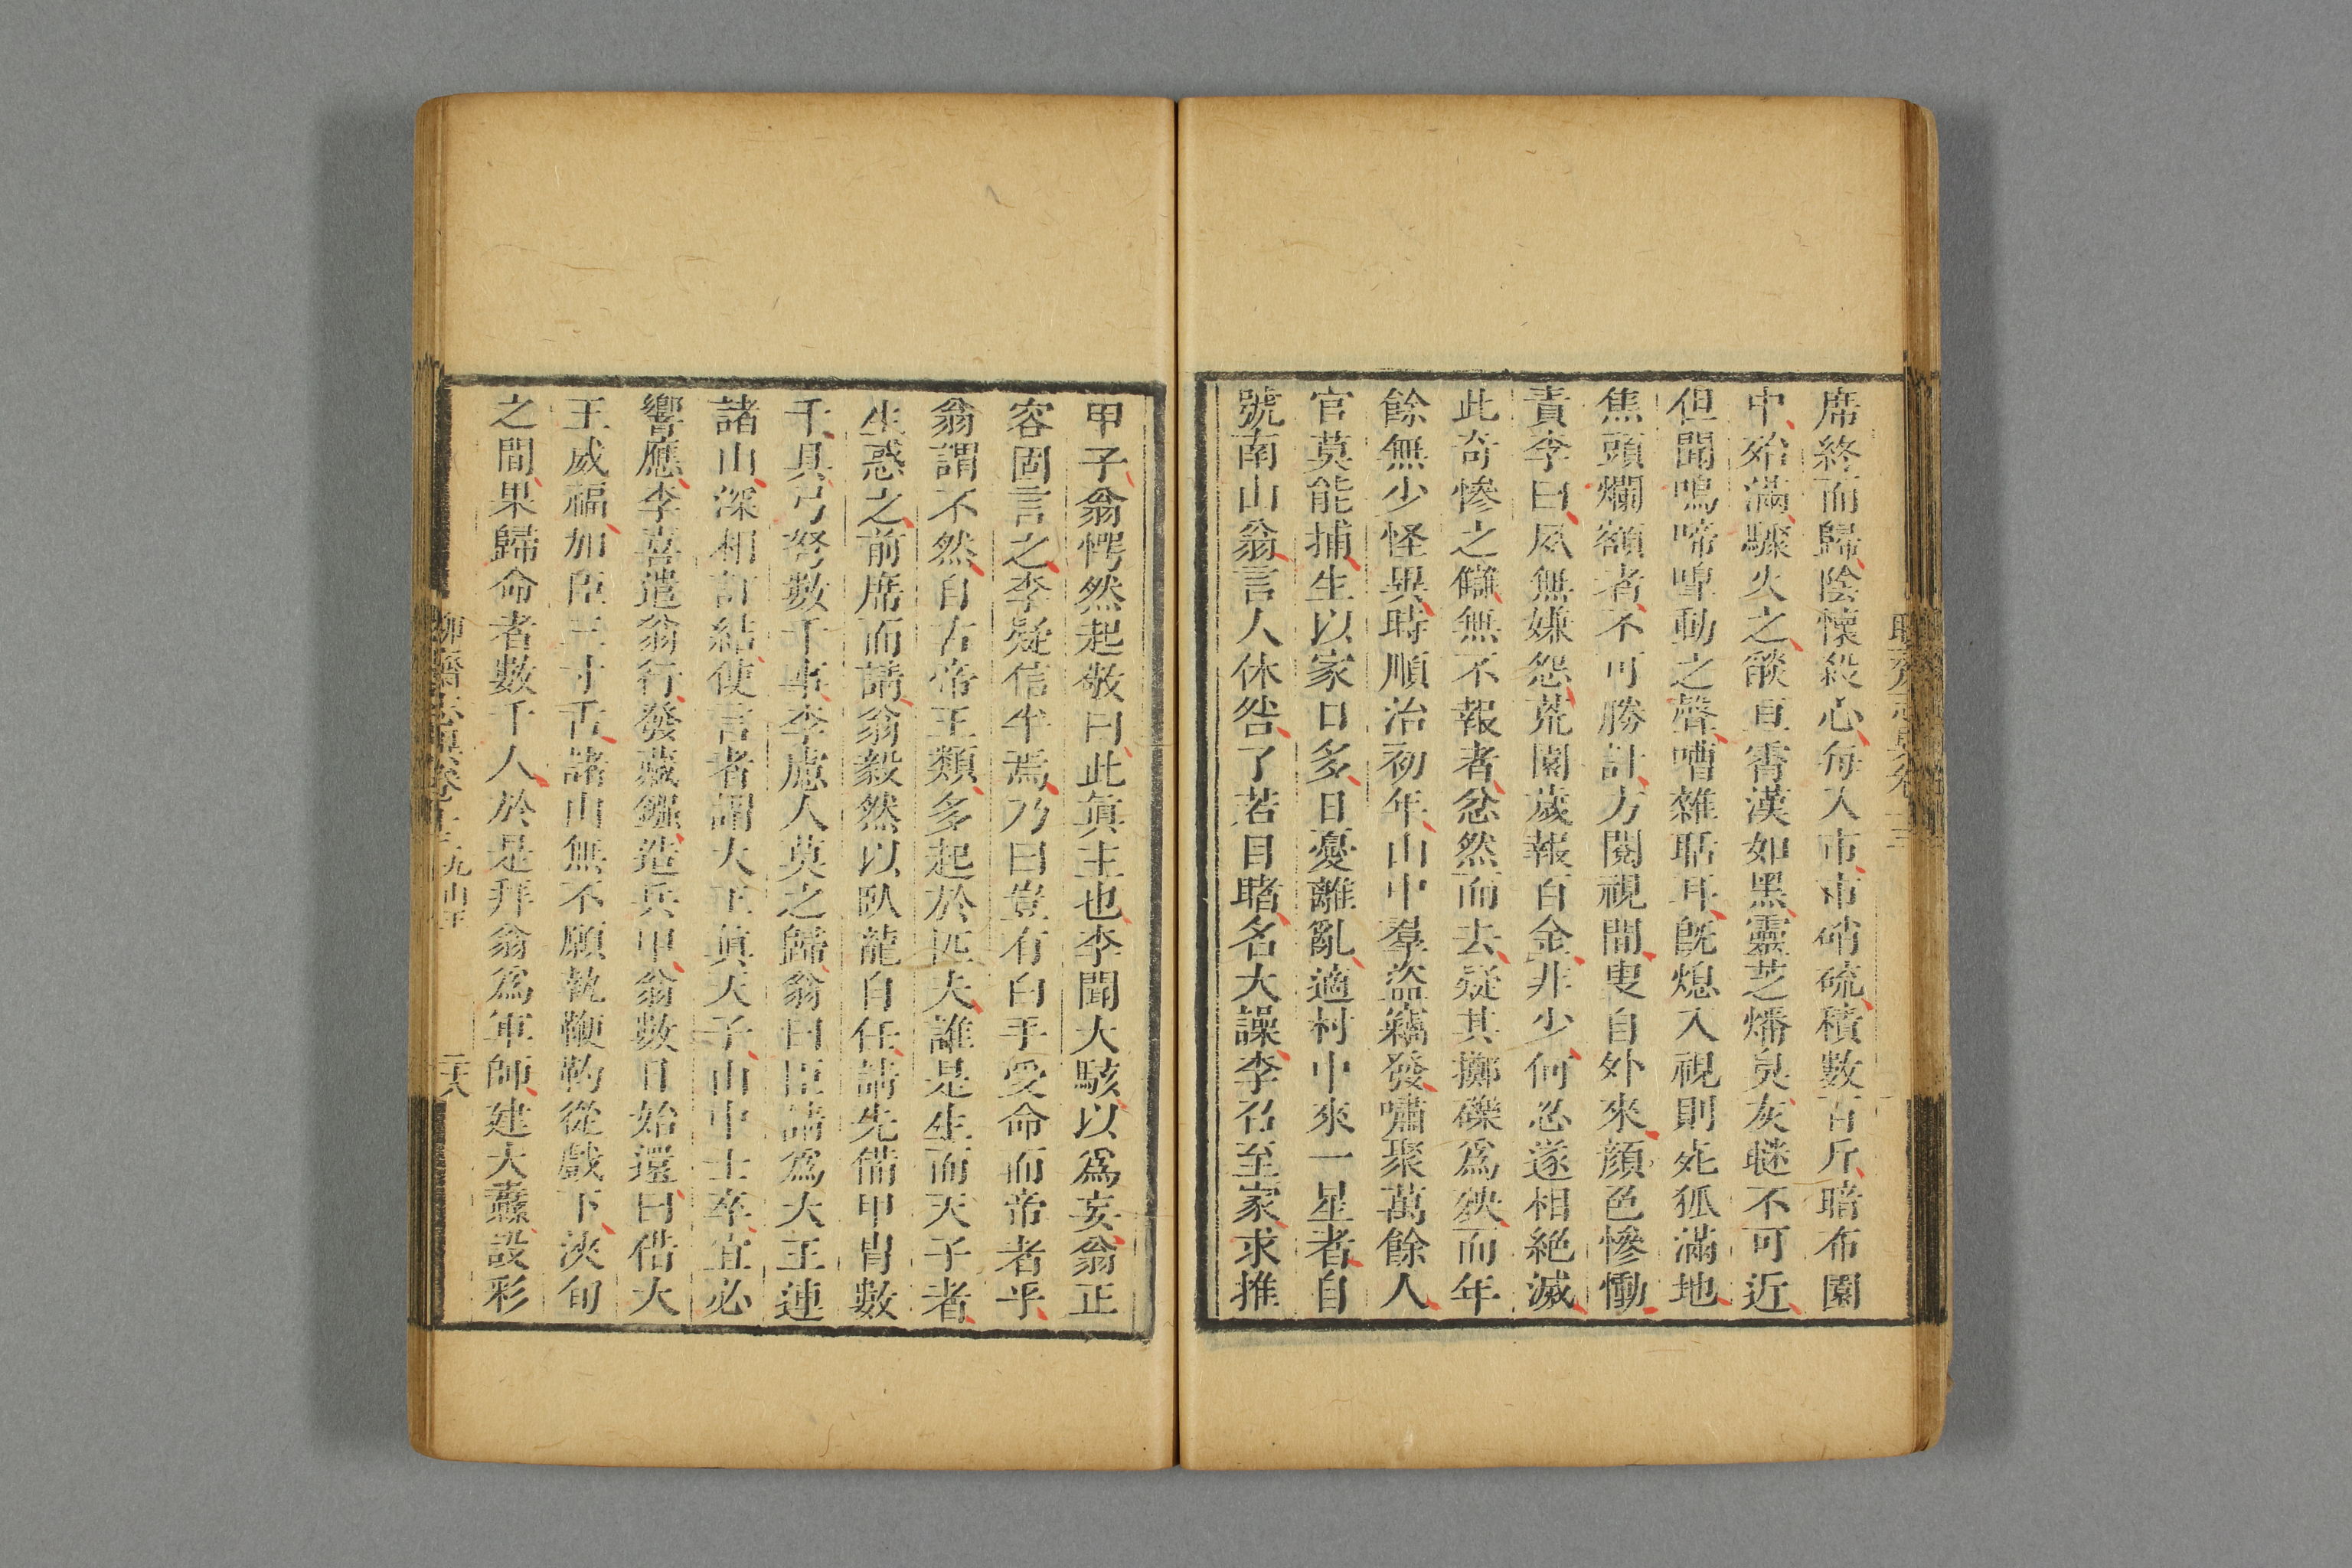 席終而歸陰懷殺心每入市市硝硫積數百斤暗布園
中殆滿驟火之燄亘霄漢如黑靈芝燔臭灰瞇不可近
但聞鳴啼嘷動之聲嘈雜聒耳旣熄入視則死狐滿地
焦頭爛額者不可勝計方閱視間叟自外來顏色慘慟
責李曰夙無嫌怨荒園歲報百金非少何忍遂相絕滅
此奇慘之讎無不報者忿然而去疑其擲礫爲殃而年
餘無少怪異時順治初年山中羣盜竊發嘯聚萬餘人
官莫能捕生以家口多日憂離亂適村中來一星者自
號南山翁言人休咎了若目睹名大譟李召至家求推
甲子翁愕然起敬曰此眞主也李聞大駭以爲妄翁正
容固言之李疑信半焉乃曰豈有白手受命而帝者乎
翁謂不然自古帝王類多起於匹夫誰是生而天子者
生惑之前席而請翁毅然以臥龍自任請先備甲冑數
千具弓弩數千事李慮人莫之歸翁曰臣請爲大王連
諸山深相訂結使言者謂大王眞天子山中士卒宜必
響應李喜遣翁行發藏鏹造兵甲翁數日始還曰借大
王威福加臣三寸舌諸山無不願執鞭靮從戲下浹旬
之間果歸命者數千人於是拜翁爲軍師建大纛設彩